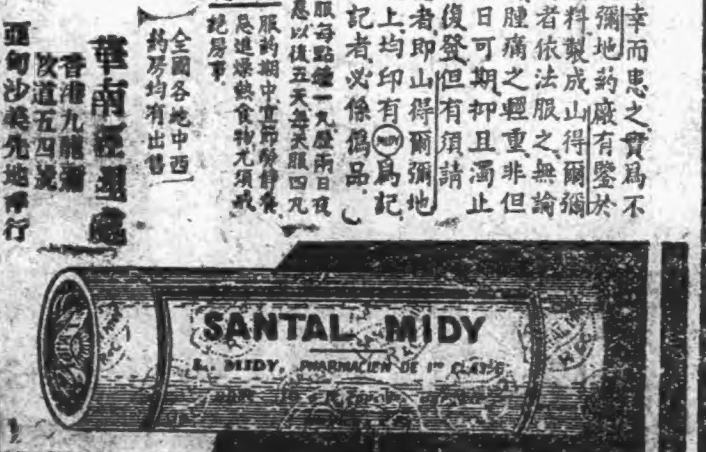 幸而患之實爲不
彌地药廠有鑒於
料製成山得爾彌
者依法服之無論
腫痛之輕重非但
日可期抑且濁止
復發但有須請
者即山得爾彌地
上均印有MIDY爲記
記者必係僞品
服每點鐘一九歷兩日夜
息以後五天每天服四九
服药期中宜節醉靜養
忌進燥熱食物尤須戒
絕房事
全國各地中西
药房均有出售
華南經理處
香港九龍彌
敦道五四號
亞甸沙美先地洋行
SANTAL MIDY
L. MIDY, PHARMACIEN DE 1re CLASSE